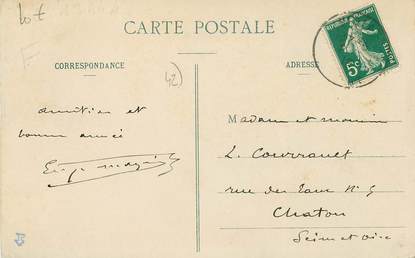 Lot
CARTE POSTALE
CORRESPONDANCE
ADRESSE
REPUBLIQUE FRANÇAISE
5c
POSTES
42
amitiés et
bonne année
Madame et monsieur
L. Courrauet
rue des Tour N° 5
Chatou
Seine et Oise